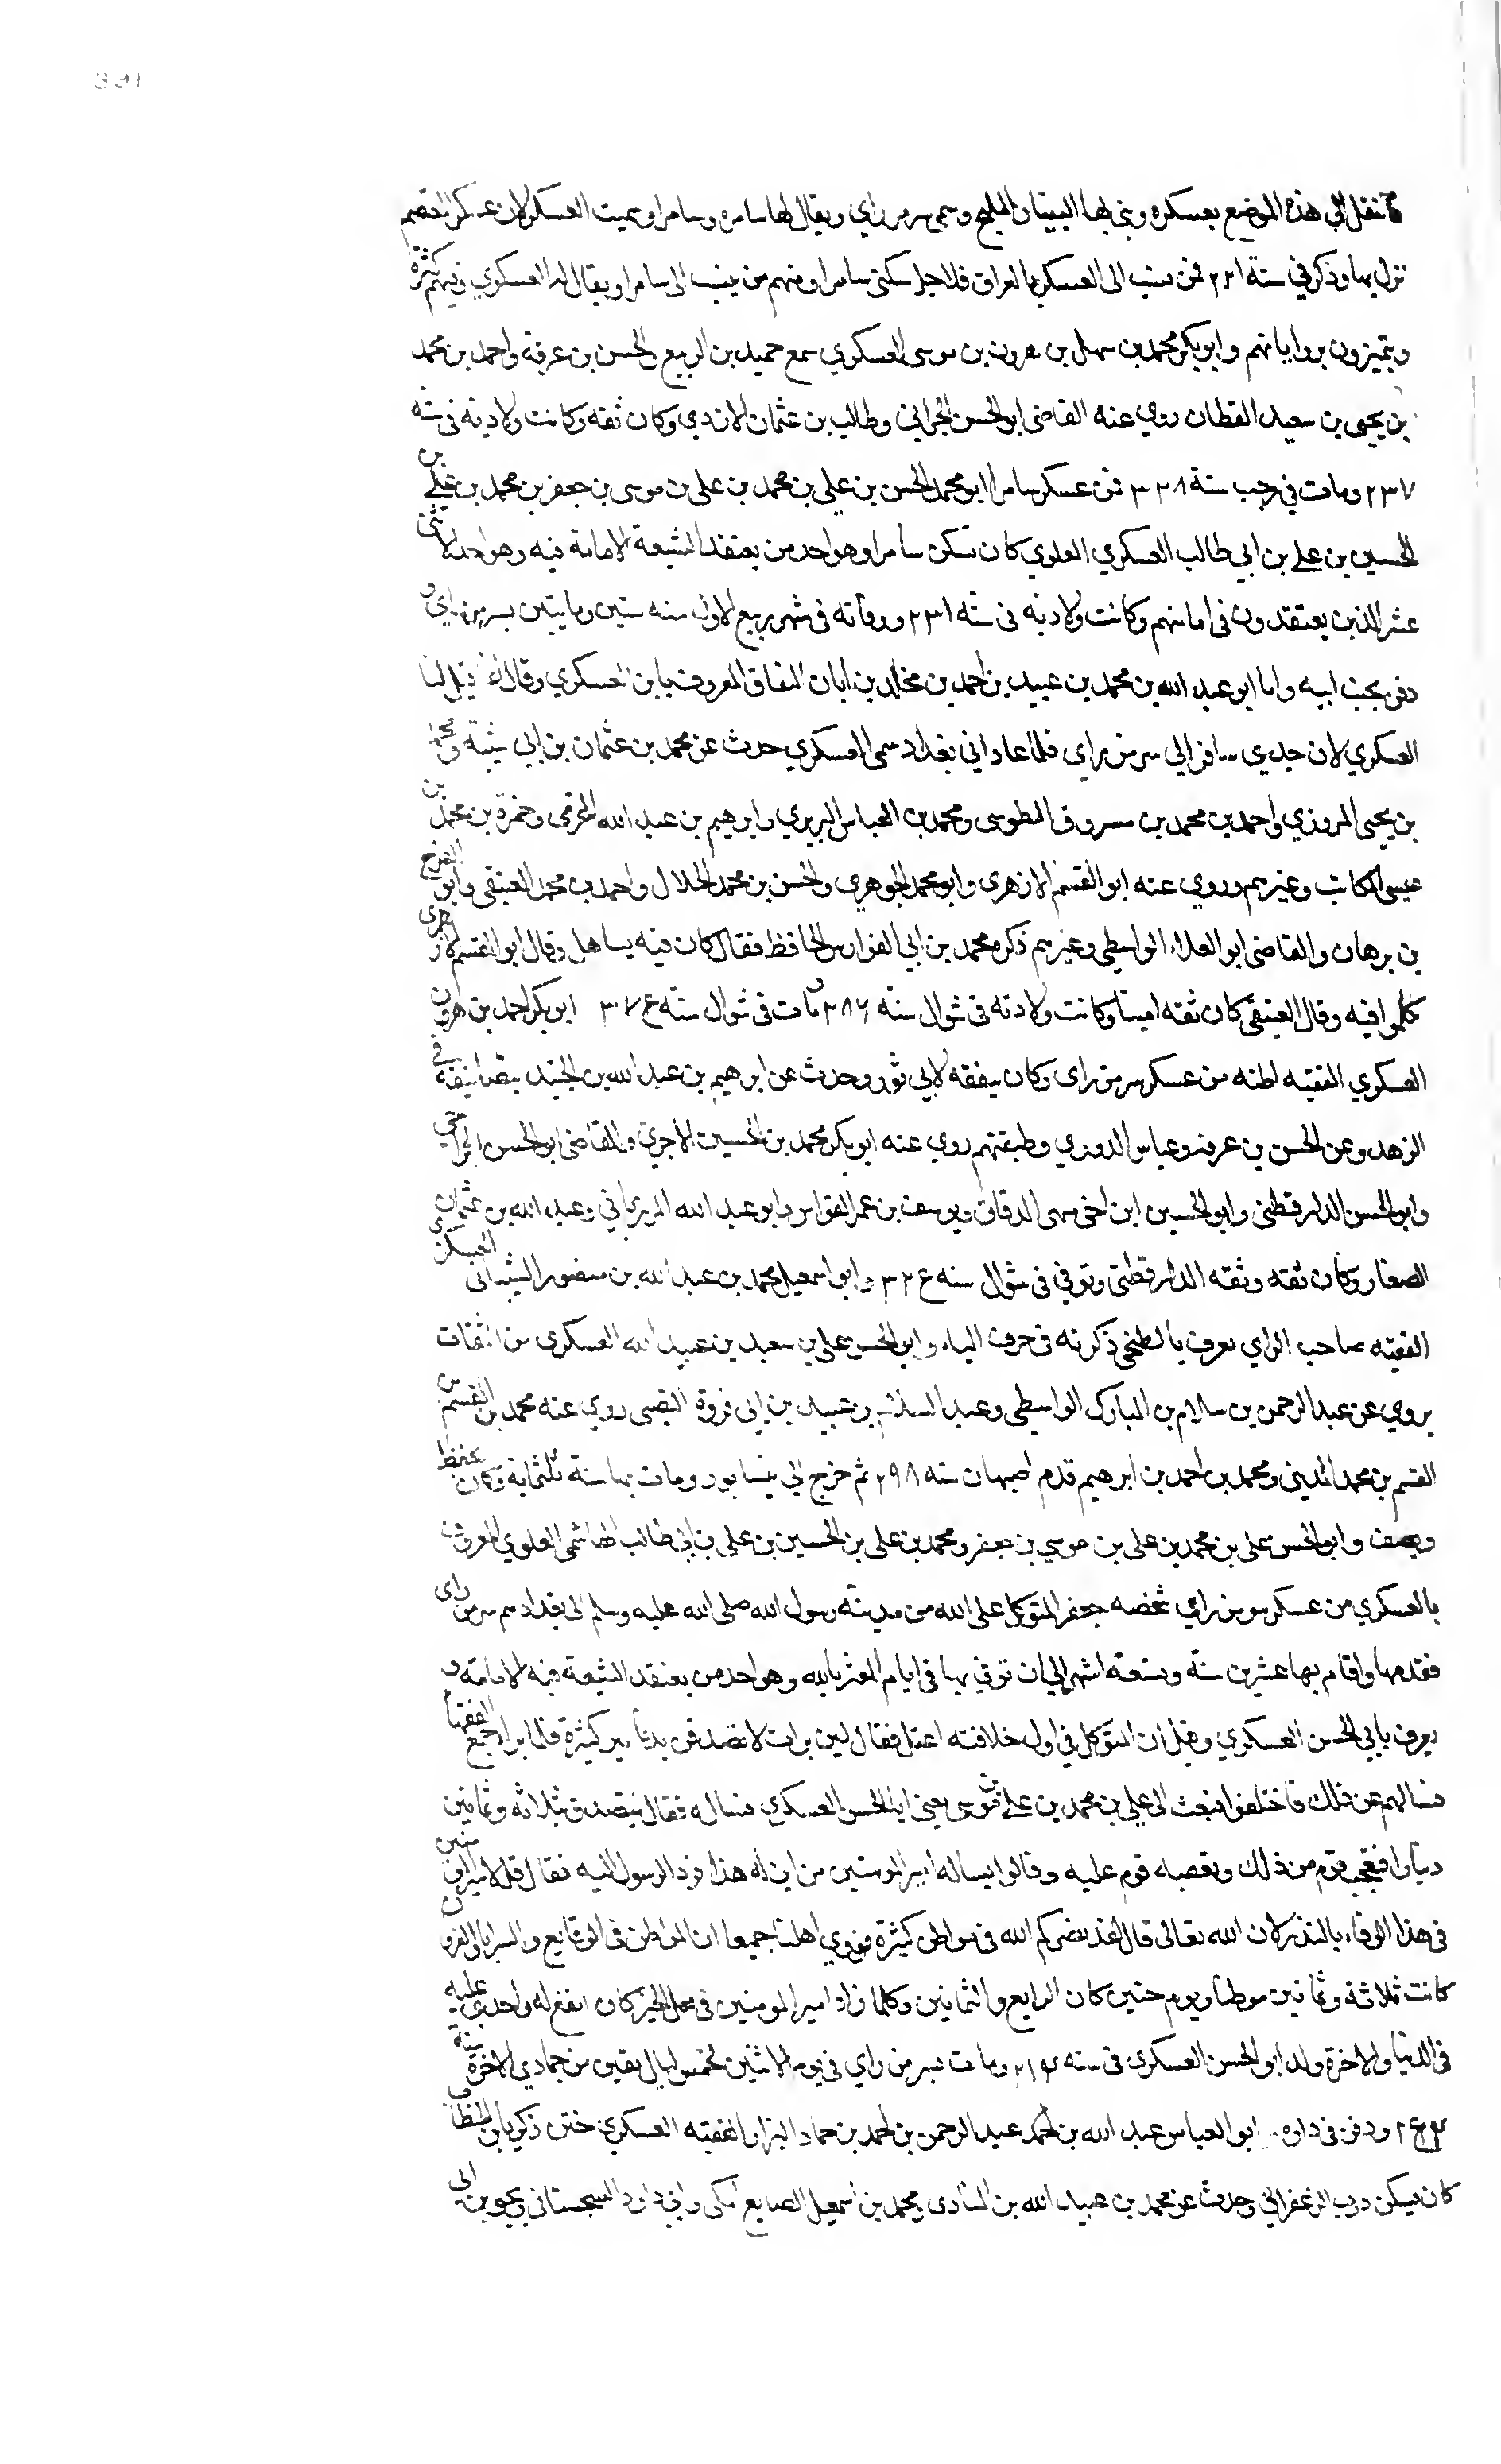 391
فانتقل الى هذه الموضع بعسكره وبنى لها البنيان المليح وسمى سر من راي ويقال لها سامره وسامرا وسميت العسكر لان عسكر المعتصم
نزل بها وذكر في سنة ٢٢١ فمن نسب الى العسكر بالعراق فلاجل سكنى سامرا ومنهم من ينسب الى سامرا ويقال له العسكري وفيهم كثرة
ويتميزون برواياتهم وابو بكر محمد بن سهل بن هرون بن موسى العسكري سمع حميد بن الربيع والحسن بن عرفة واحمد بن محمد
بن يحيى بن سعيد القطان روي عنه القاضى ابو الحسن الجراحي وطالب بن عثمان الازدي وكان ثقه وكانت ولادته فى سنه
٢٣٧ ومات في رجب سنة ٣٣٨ فمن عسكر سامرا ابو محمد الحسن بن علي بن محمد بن على بن موسى بن جعفر بن محمد بن على بن
الحسين بن على بن ابي طالب العسكري العلوي كان تسكن سامرا وهو احد من يعتقد الشيعة الامامة فيه وهو احد الاثنى
عشر الذين يعتقدون فى امامتهم وكانت ولادته فى سنة ٢٣١ ووفاته فى شهر ربيع الاول سنه ستين ومايتين بسر من راي و
دفن بجنب ابيه واما ابو عبد الله بن محمد بن عبيد بن احمد بن مخلد بن ابان الدقاق المعروف بابن العسكري وقال انما قيل لنا
العسكري لان جدي سافر الي سر من راي فلما عاد اني بغداد سمى العسكري حدث عن محمد بن عثمان بن ابي شيبة ومحمد
بن يحيى المروزي واحمد بن محمد بن مسروق الطوسى ومحمد بن العباس اليزيدي وابرهيم بن عبد الله المخرمى وحمزة بن محمد بن
عيسى الكاتب وغيرهم وروي عنه ابو القسم الازهرى وابو محمد الجوهري والحسن بن محمد الخلال واحمد بن محمد العتيقي وابو الفرج
بن برهان والقاضى ابو العلاء الواسطى وغيرهم ذكره محمد بن ابي الفوارس الحافظ فقال كان فيه تساهل وقال ابو القسم الازهرى
تكلموا فيه وقال العتيقى كان ثقه امينا وكانت ولادته فى شوال سنه ٢٨٦ ومات فى شوال سنه ٣٧٤ ابو بكر احمد بن هرون
العسكري الفقيه اظنه من عسكر سر من راى وكان يتفقه لابي ثور وحدث عن ابرهيم بن عبد الله بن الجنيد بتصانيفه في
الزهد وعن الحسن بن عرفه وعباس الدوري وطبقتهم روي عنه ابو بكر محمد بن الحسين الاجري والقاضى ابو الحسن الجراحي
وابو الحسن الدارقطنى وابو الحسين ابن اخى ميمى الدقاق ويوسف بن عمر القواس وابو عبد الله المرزباني وعبد الله بن عثمان
الصفار وكان ثقه وثقه الدارقطنى وتوفي فى شوال سنه ٣٢٤ وابو اسمعيل محمد بن عبد الله بن منصور الشيبانى العسكرى
الفقيه صاحب الراي يعرف بالبطيخى ذكرته فى حرف الباء وابو الحسن على بن سعيد بن عبيد الله العسكرى من الثقات
يروي عن عبد الرحمن بن سلام بن المبارك الواسطى وعبد السلام بن عبيد بن ابى فروة النصيبى روي عنه محمد بن القسم بن
القسم بن محمد المديني ومحمد بن احمد بن ابرهيم قدم اصبهان سنه ٢٩٨ ثم خرج الي نيسابور ومات بها سنة ثلثمايه وكان يحفظ
ويصنف وابو الحسن على بن محمد بن على بن موسي بن جعفر ومحمد بن على بن الحسين بن على بن ابي طالب الهاشمى العلوي المعروف
بالعسكري من عسكر سر من راي شخصه جعفر المتوكل على الله من مدينة رسول الله صلى الله عليه وسلم الى بغداد ثم سر من راى
فقدمها واقام بها عشرين سنة وتسعة اشهر الي ان توفى بها فى ايام المعتز بالله وهو احد من يعتقد الشيعة فيه الامامة و
يعرف بابي الحسن العسكري وقيل ان المتوكل في اول خلافته اعتل فقال لين برات لاتصدقن بدنانير كثيرة فلما برا جمع الفقهاء
فسالهم عن ذلك فاختلفوا فبعث الى علي بن محمد بن على بن موسى يعني ابا الحسن العسكري فساله فقال يتصدق بثلاثه وثمانين
دينارا فتعجب قوم من ذلك وتعصبه قوم عليه وقالوا يساله امير المومنين من اين له هذا فرد الرسول اليه فقال قل لامير المومنين
فى هذا الوفاء بالنذر لان الله تعالى قال لقد نصركم الله فى مواطن كثيرة فروي اهلنا جميعا ان المواطن فى الوقايع والسرايا والغزوات
كانت ثلاثة وثمانين موطنا ويوم حنين كان الرابع والثمانين وكلما زاد امير المومنين في فعل الخير كان انفع له واجدى عليه
فى الدنيا والاخرة ولد ابو الحسن العسكرى فى سنه ٢١٤ ومات بسر من راي فى يوم الاثنين لخمس ليال بقين من جمادي الاخرة سنة
٢٥٤ ودفن فى داره ابو العباس عبد الله بن احمد عبد الرحمن بن احمد بن حماد البزار الفقيه العسكري ختن زكريا بن الخطاب
كان يسكن درب الزعفراني وحدث عن محمد بن عبيد الله بن المنادى ومحمد بن اسمعيل الصايغ المكى وابى داود السجستاني ويحيى بن ابى